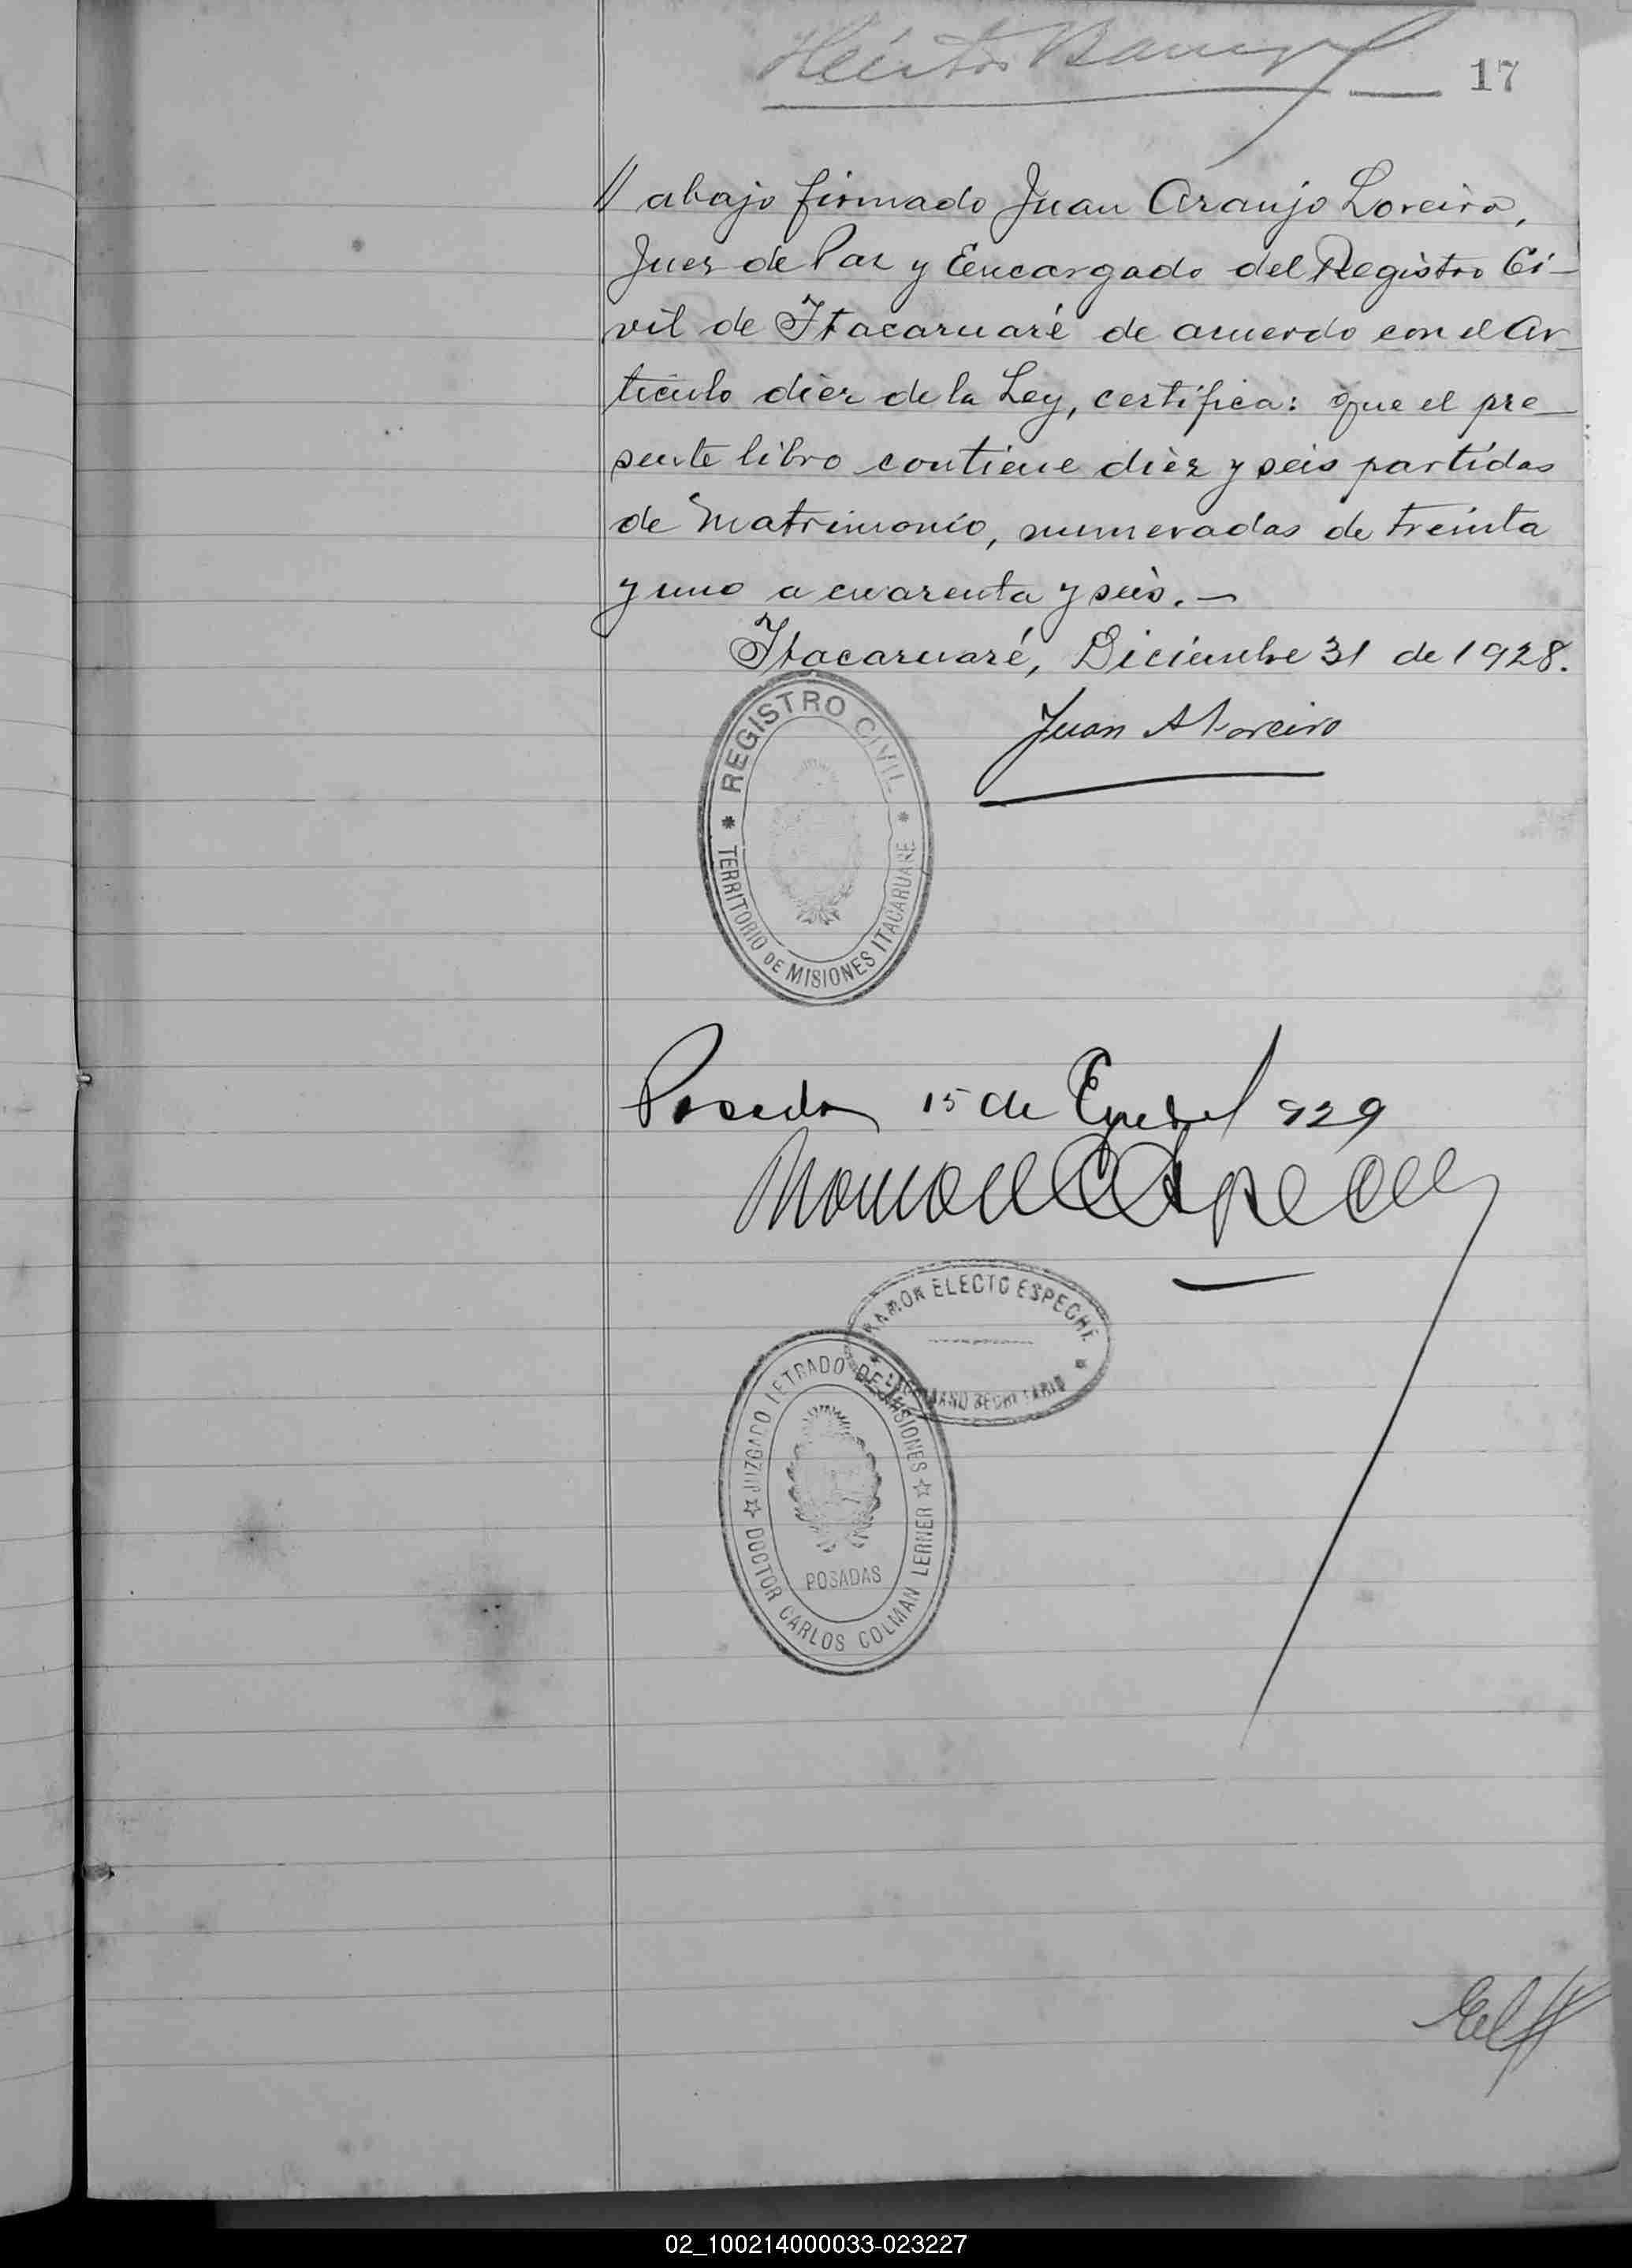 Héctor
17
// abajo firmado Juan Araujo Loreiro,
Juez de Paz y Eencargado del Registro Ci-
vil de Itacaruaré de acuerdo con el Ar-
tículo diez de la Ley, certifica: que el pre-
sente libro contiene diez y seis partidas
de Matrimonio, numeradas de treinta
y uno a cuarenta y seis.-
Itacaruaré, Diciembre 31 de 1928.
Juan A Loreiro
REGISTRO CIVIL
* TERRITORIO DE MISIONES ITACARUARE *
Posadas 15 de Enero/929
RAMON ELECTO ESPECHE
* ESCRIBANO SECRETARIO *
JUZGADO LETRADO DE MISIONES
POSADAS
☆ DOCTOR CARLOS COLMAN LERNER ☆
02_100214000033-023227